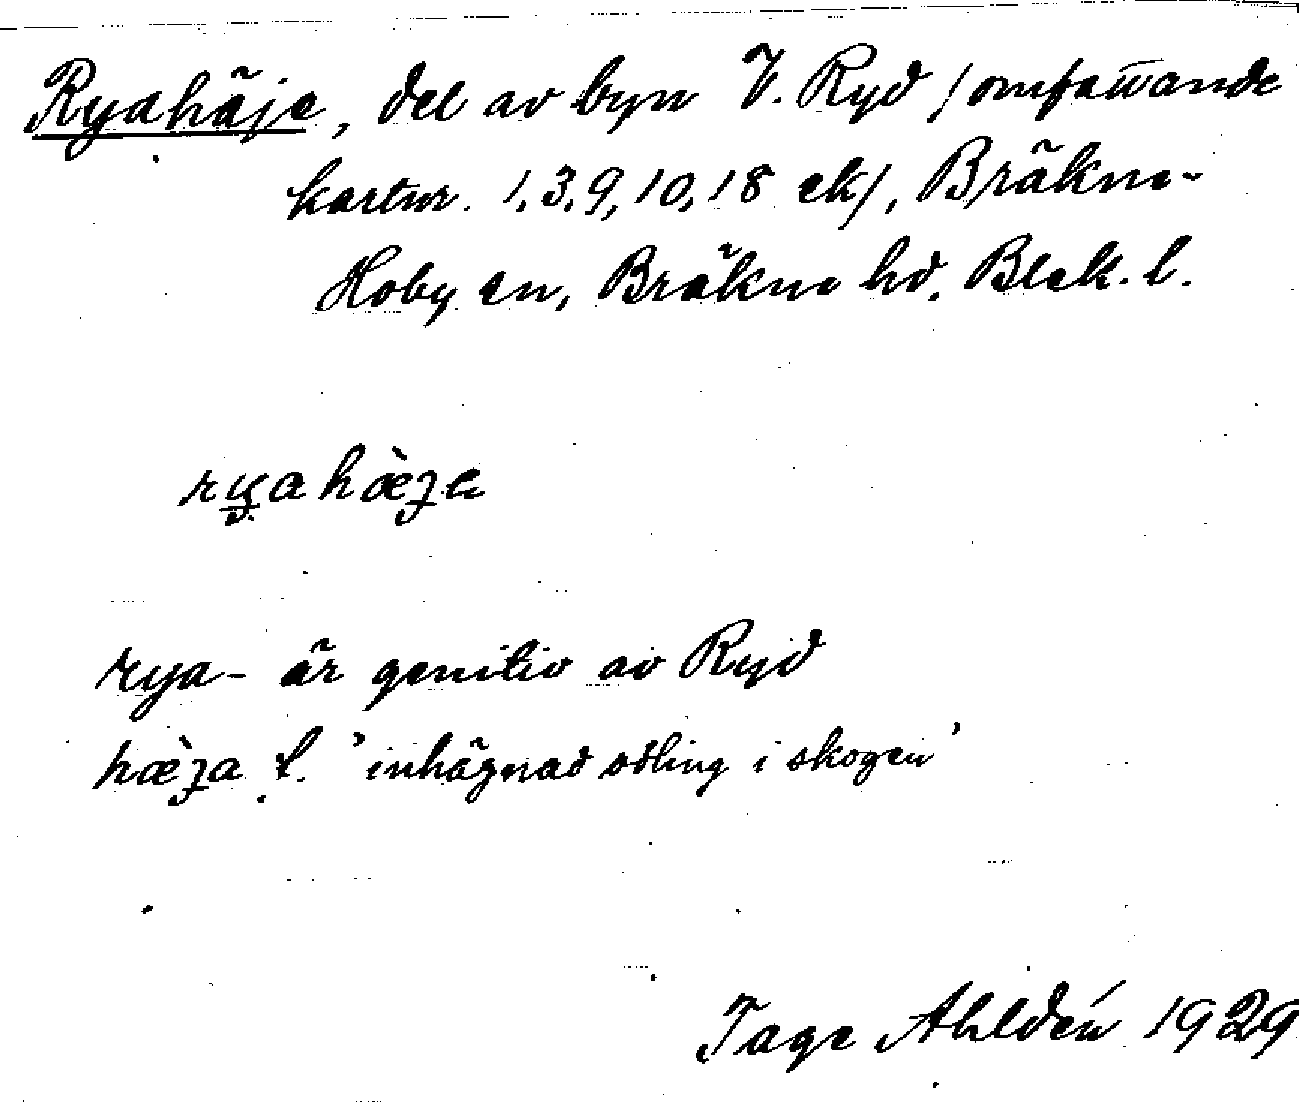 Ryahäje, del av byn V. Ryd /omfattande
kartnr. 1,3,9,10,18 ek/, Bräkne-
Hoby sn, Bräkne hd. Blek. l.
ryahæ̀ʒe
rya- är genitiv av Ryd
hæ̀ʒa f. 'inhägnad odling i skogen'
Tage Ahldén 1929